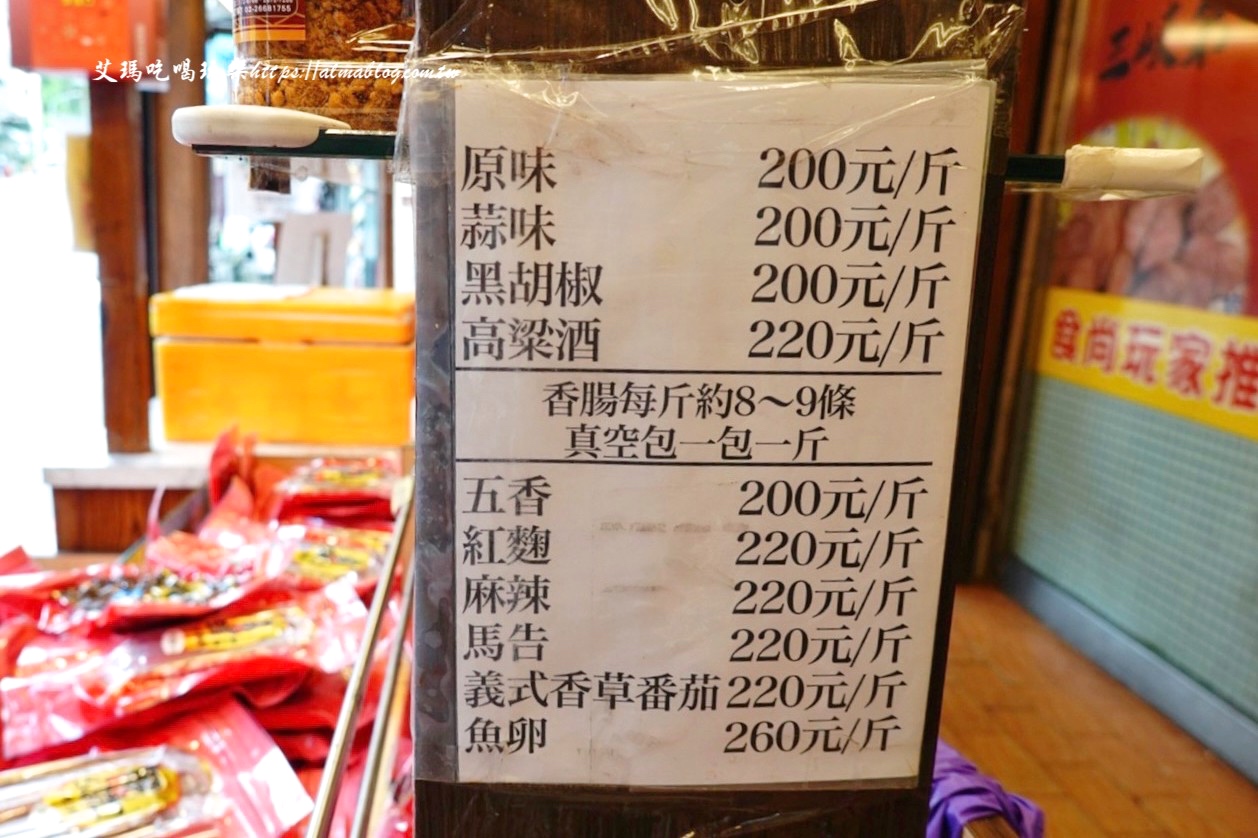 02-26681755
艾瑪吃喝玩樂https://almablog.com.tw
三峽
原味 200元/斤
蒜味 200元/斤
黑胡椒 200元/斤
高粱酒 220元/斤
香腸每斤約8～9條
真空包一包一斤
五香 200元/斤
紅麴 220元/斤
麻辣 220元/斤
馬告 220元/斤
義式香草番茄 220元/斤
魚卵 260元/斤
食尚玩家推